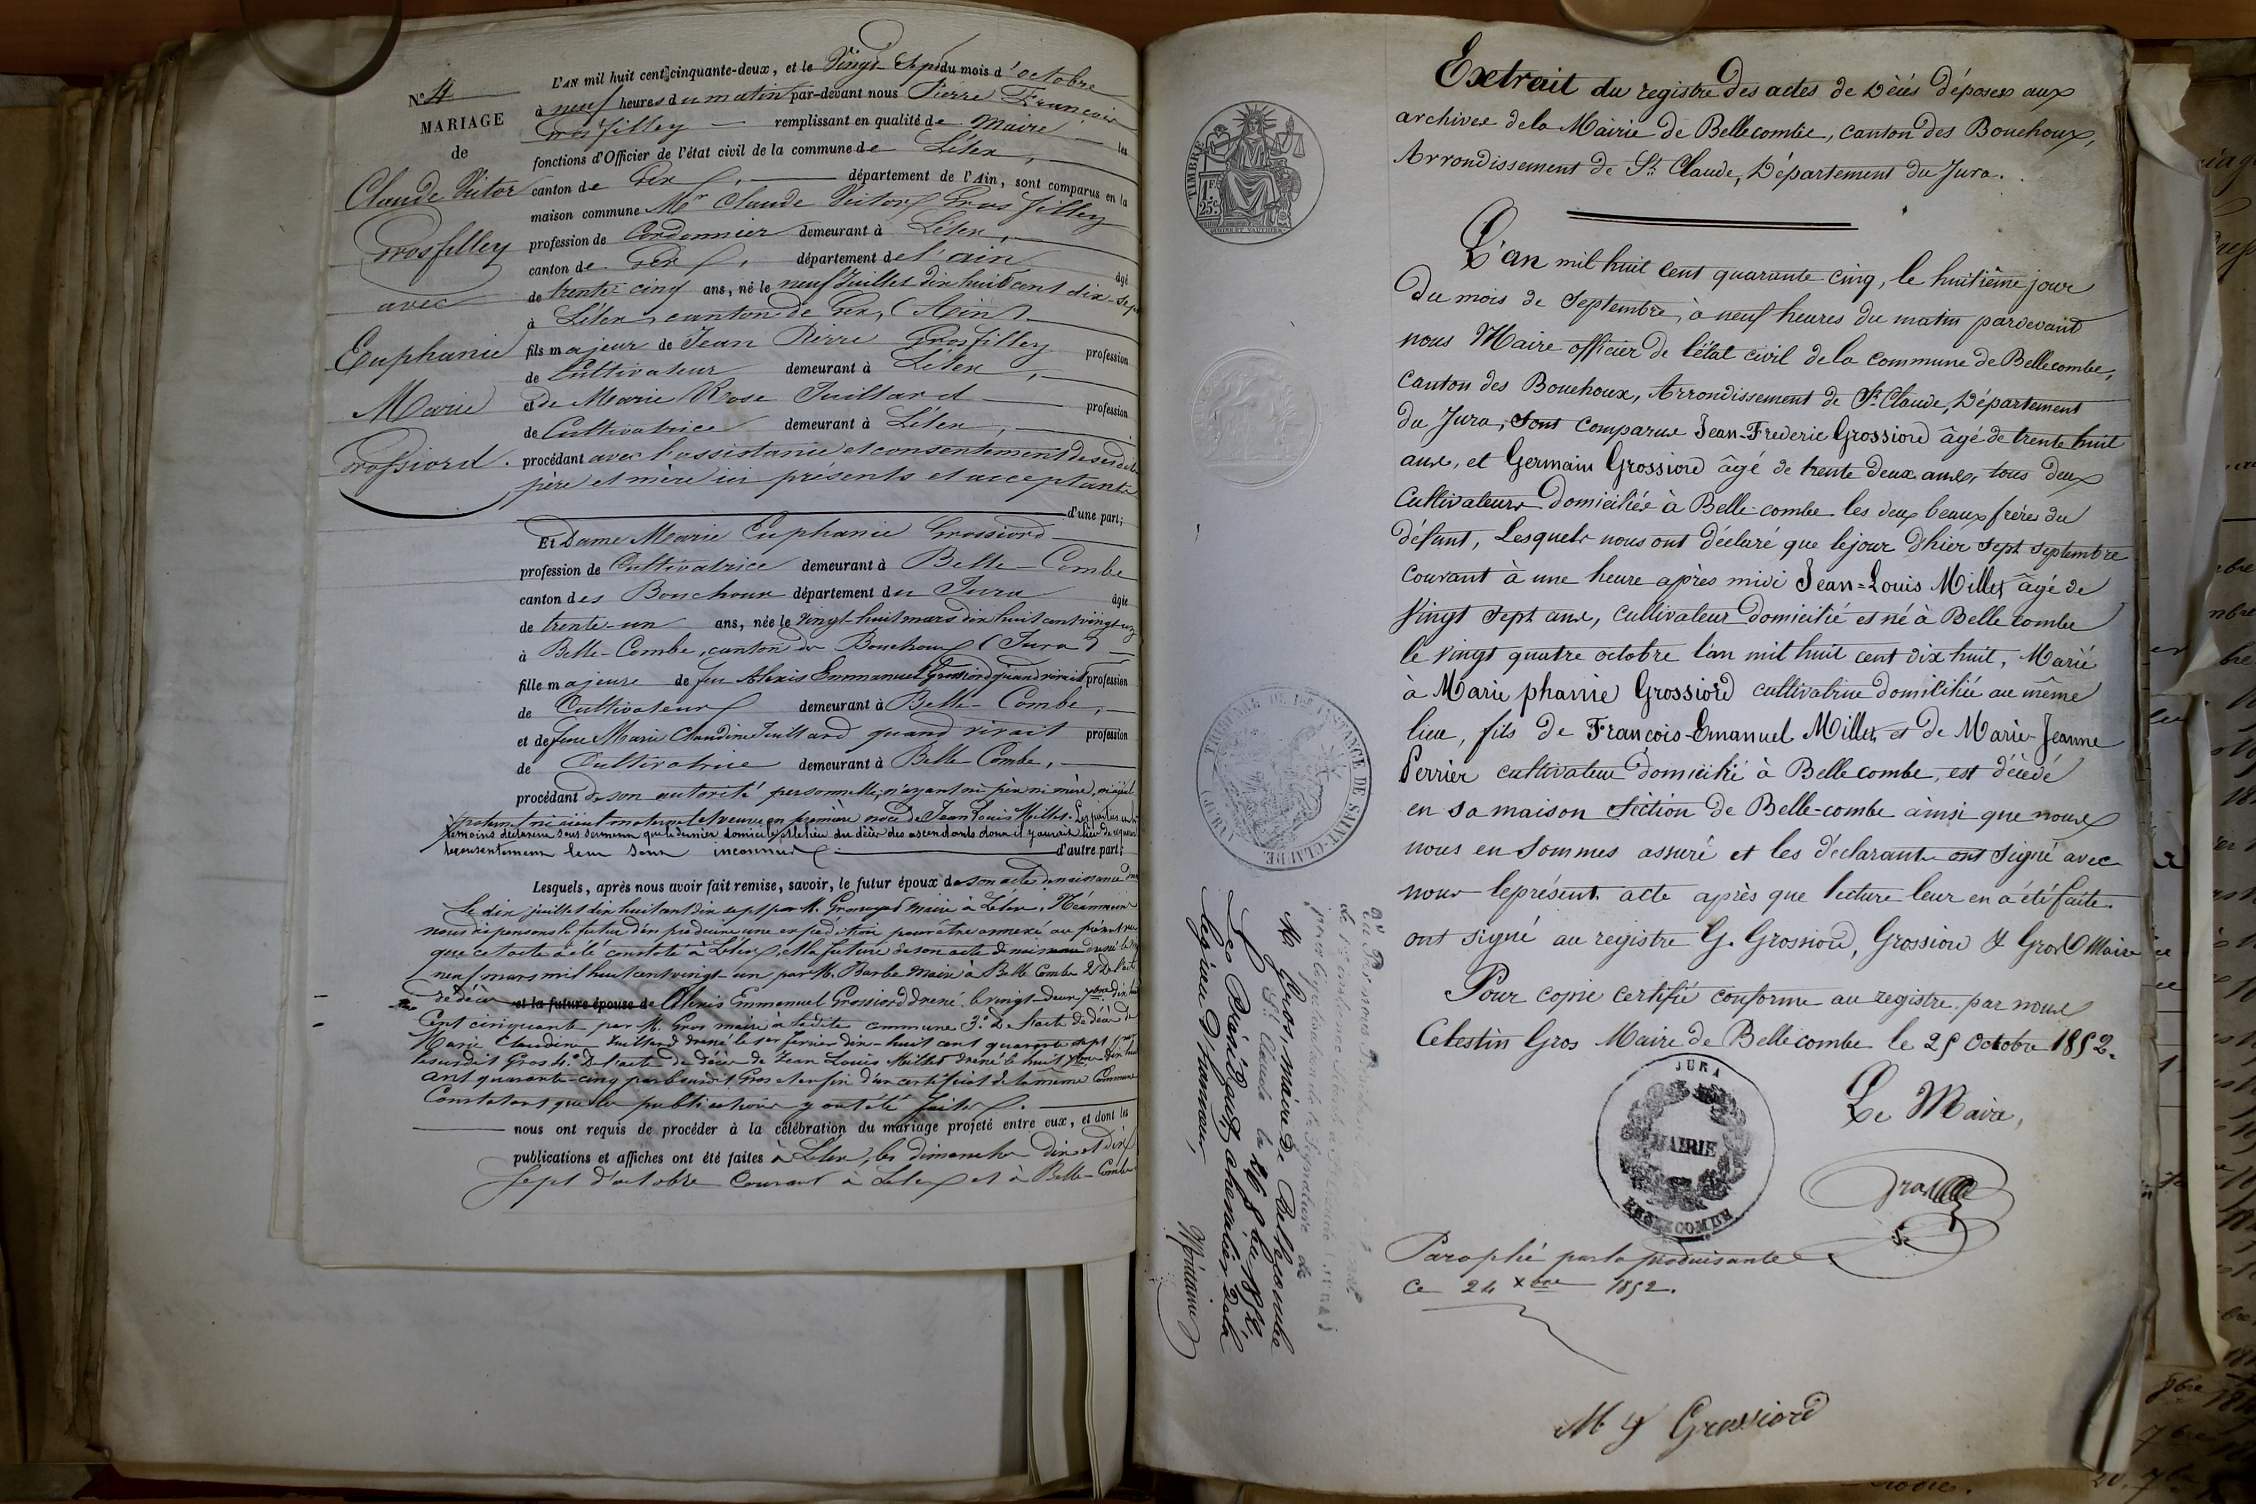 N° 4
MARIAGE
de
Claude Victor
Grosfilley
avec
Euphanie
Marie
Grossiord.
L'AN mil huit cent cinquante-deux, et le Vingt Sept du mois d'octobre
à neuf heures du matin par-devant nous Pierre François
Grosfilley remplissant en qualité de Maire les
fonctions d'Officier de l'état civil de la commune de Lélex,
canton de Gex, département de l'Ain, sont comparus en la
maison commune Mr Claude Victor Gros filley
profession de Cordonnier demeurant à Lélex,
canton de Gex, département de l'ain âgé
de trente cinq ans, né le neuf Juillet dix huit cent dix-sept
à Lélex, canton de Gex, (Ain)
fils majeur de Jean Pierre Grosfilley profession
de Cultivateur demeurant à Lélex,
et de Marie Rose Juillard profession
de Cultivatrice demeurant à Lélex,
procédant avec l'assistance et consentement de ses dits
père et mère ici présents et acceptants
d'une part;
Et Dame Marie Euphanie Grossiord
profession de Cultivatrice demeurant à Belle-Combe
canton des Bouchoux département du Jura âgée
de trente-un ans, née le Vingt-huit mars dix huit cent vingt-un
à Belle-Combe, canton des Bouchoux (Jura)
fille majeure de feu Alexis Emmanuel Grossiord quand vivait profession
de Cultivateur demeurant à Belle-Combe,
et de feue Marie Claudine Juillard quand vivait profession
de Cultivatrice demeurant à Belle-Combe,
procédant de son autorité personnelle, n'ayant ni père ni mère, ni aïeul
paternel ni aïeul maternel et veuve en première noce de Jean Louis Millet. Les parties et les
témoins déclarent sous serment que le dernier domicile et le lieu du décès des ascendants dont il y aurait lieu de requérir
le consentement leur sont inconnus d'autre part;
Lesquels, après nous avoir fait remise, savoir, le futur époux de son acte de naissance
le dix juillet dix huit cent dix sept par M. Maire à Lélex. Néanmoins
nous dispensons le futur d'en produire une expédition pour être annexé au présent vu
que cet acte a été constaté à Lélex, et la future de son acte de naissance dressé le vingt
neuf mars mil huit cent vingt un par M. Barbe Maire à Belle Combe 2° De l'acte
de décès et la future épouse de Alexis Emmanuel Grossiord dressé le vingt-deux 7bre dix huit
Cent cinquante par M. Gros maire à la dite commune 3° De l'acte de décès de
Marie Claudine Juillard dressé le 1er février dix-huit cent quarante sept par
le susdit Gros 4° De l'acte de décès de Jean Louis Millet dressé le huit 7bre dix huit
cent quarante-cinq par le susdit Gros et enfin d'un certificat de la même Commune
Constatant que les publications y ont été faites.
nous ont requis de procéder à la célébration du mariage projeté entre eux, et dont les
publications et affiches ont été faites à Lélex, les dimanches dix et dix
sept d'octobre courant à Lélex et à Belle-Combe
Extrait du registre des actes de Décès déposés aux
archives de la Mairie de Bellecombe, canton des Bouchoux,
Arrondissement de St. Claude, Département du Jura.
L'an mil huit cent quarante cinq, le huitième jour
du mois de Septembre, à neuf heures du matin pardevant
nous Maire officier de l'état civil de la commune de Bellecombe,
canton des Bouchoux, Arrondissement de St. Claude, Département
du Jura, sont comparus Jean-Frederic Grossiord âgé de trente huit
ans, et Germain Grossiord âgé de trente deux ans, tous deux
cultivateurs domiciliés à Belle-combe les deux beaux frères du
défunt, Lesquels nous ont déclaré que le jour d'hier sept septembre
courant à une heure après midi Jean-Louis Millet âgé de
Vingt sept ans, cultivateur domicilié et né à Belle combe
le vingt quatre octobre l'an mil huit cent dix huit, Marié
à Marie phanie Grossiord cultivatrice domiciliée au même
lieu, fils de François-Emanuel Millet et de Marie-Jeanne
Perrier cultivateur domicilié à Belle combe, est décédé
en sa maison Section de Belle-combe ainsi que nous
nous en sommes assuré et les déclarants ont signé avec
nous le présent acte après que lecture leur en a été faite.
ont signé au registre G. Grossiord, Grossiord & Gros Maire
Pour copie certifié conforme au registre par nous
Celestin Gros Maire de Bellecombe le 25 Octobre 1852.
Le Maire,
Gros
JURA
MAIRIE
BELLECOMBE
Paraphé par la produisante
ce 24 xbre 1852.
M E Grossiord
TIMBRE
1 F.
25 c.
TRIBUNAL DE 1ère INSTANCE DE SAINT-CLAUDE (JURA)
Vu Par nous Président
de 1ère instance séant à St Claude (JURA)
pour légalisation de la Signature de
M. Gros, maire de Bellecombe
St Claude le 26 8bre 1852
Léon Dianédoud chevalier de la
légion d'honneur,